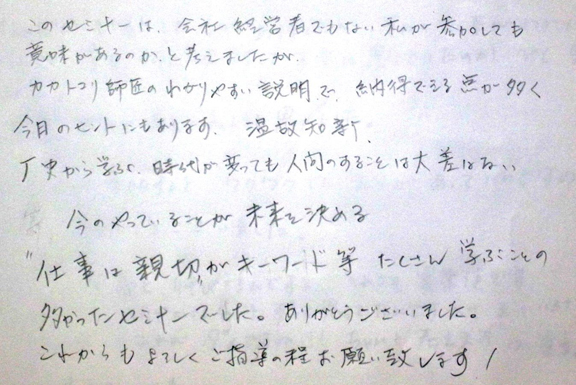 このセミナーは、会社経営者でもない私が参加しても
意味があるのか、と考えましたが、
カカトコリ師匠のわかりやすい説明で、納得できる点が多く
今日のヒントにもあります、温故知新、
丁史から学ぶ、時代が変っても人間のすることは大差はない
今のやっていることが未来を決める
"仕事は親切"がキーワード等たくさん学ぶことの
多かったセミナーでした。ありがとうございました。
これからもよろしくご指導の程お願い致します!